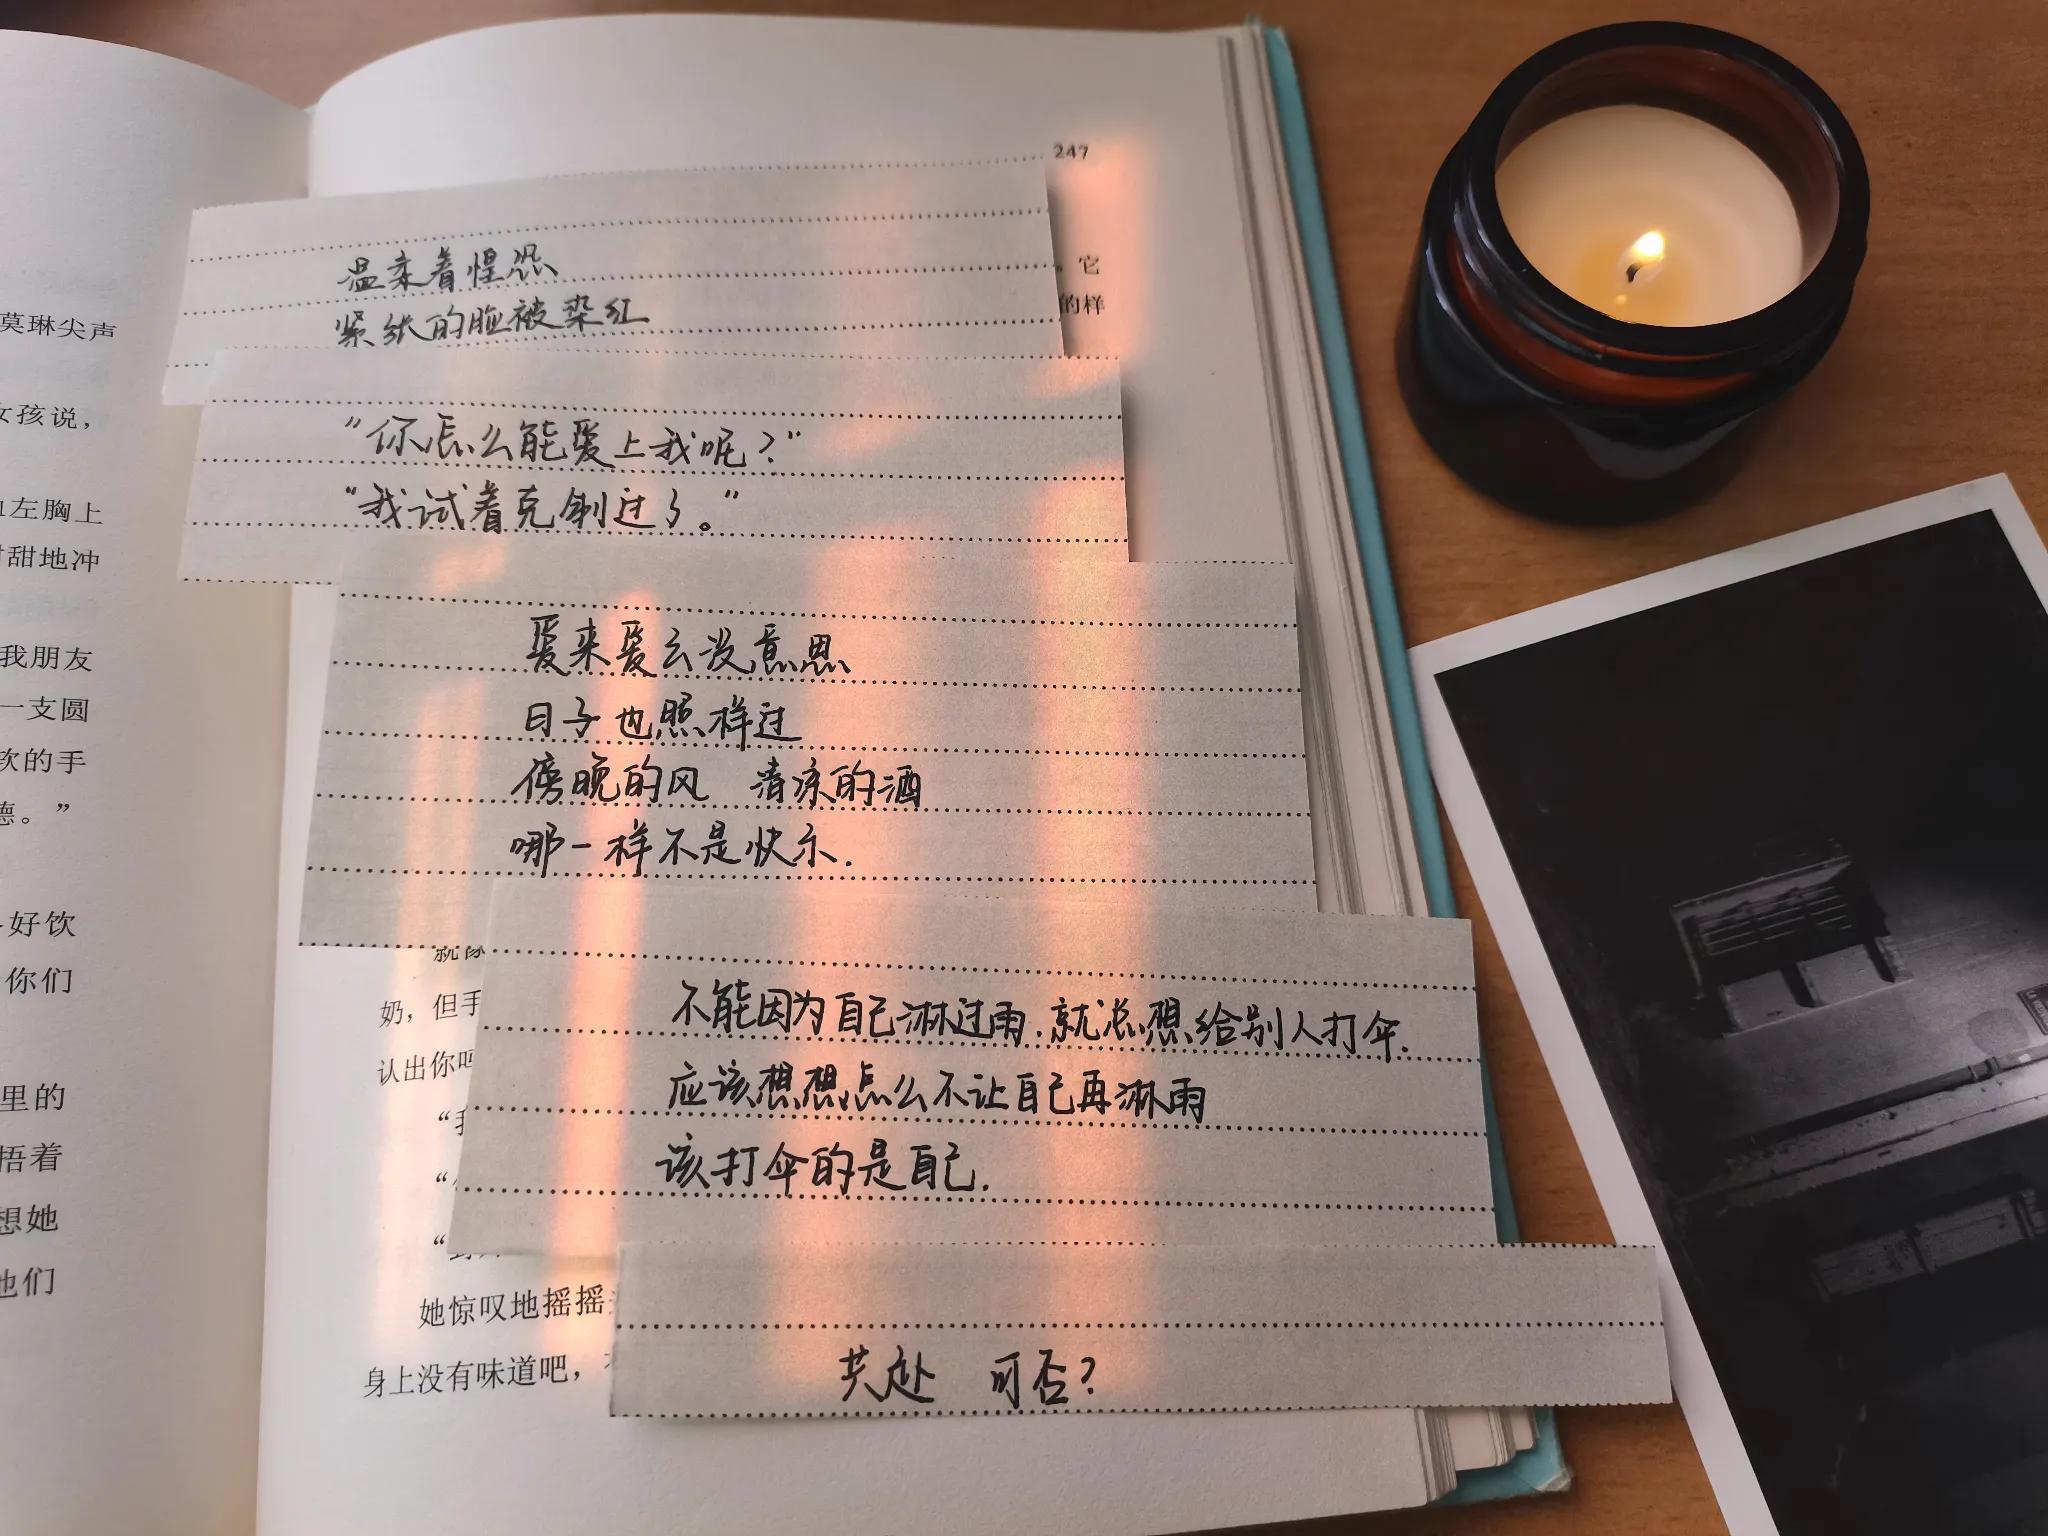 莫琳尖声
女孩说，
左胸上
甜地冲
我朋友
一支圆
软的手
德。”
好饮
你们
里的
捂着
想她
他们
247
它
的样
温柔着惶恐
紧张的脸被染红
“你怎么能爱上我呢？”
“我试着克制过了。”
爱来爱去没意思
日子也照样过
傍晚的风 清凉的酒
哪一样不是快乐.
就像
奶，但手
认出你吗
不能因为自己淋过雨.就总想给别人打伞.
应该想想怎么不让自己再淋雨
该打伞的是自己.
她惊叹地摇摇
身上没有味道吧，
共处 可否？